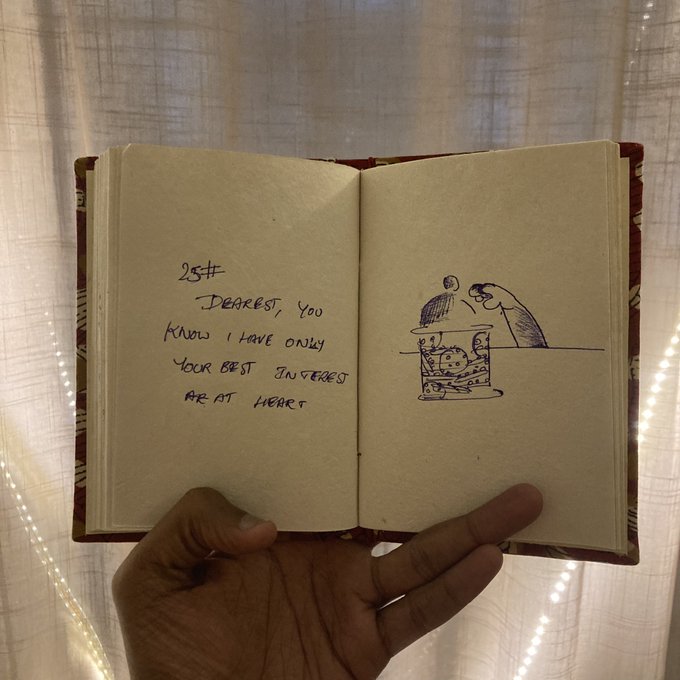 25#
DEAREST, YOU
KNOW I HAVE ONLY
YOUR BEST INTEREST
AR AT HEART